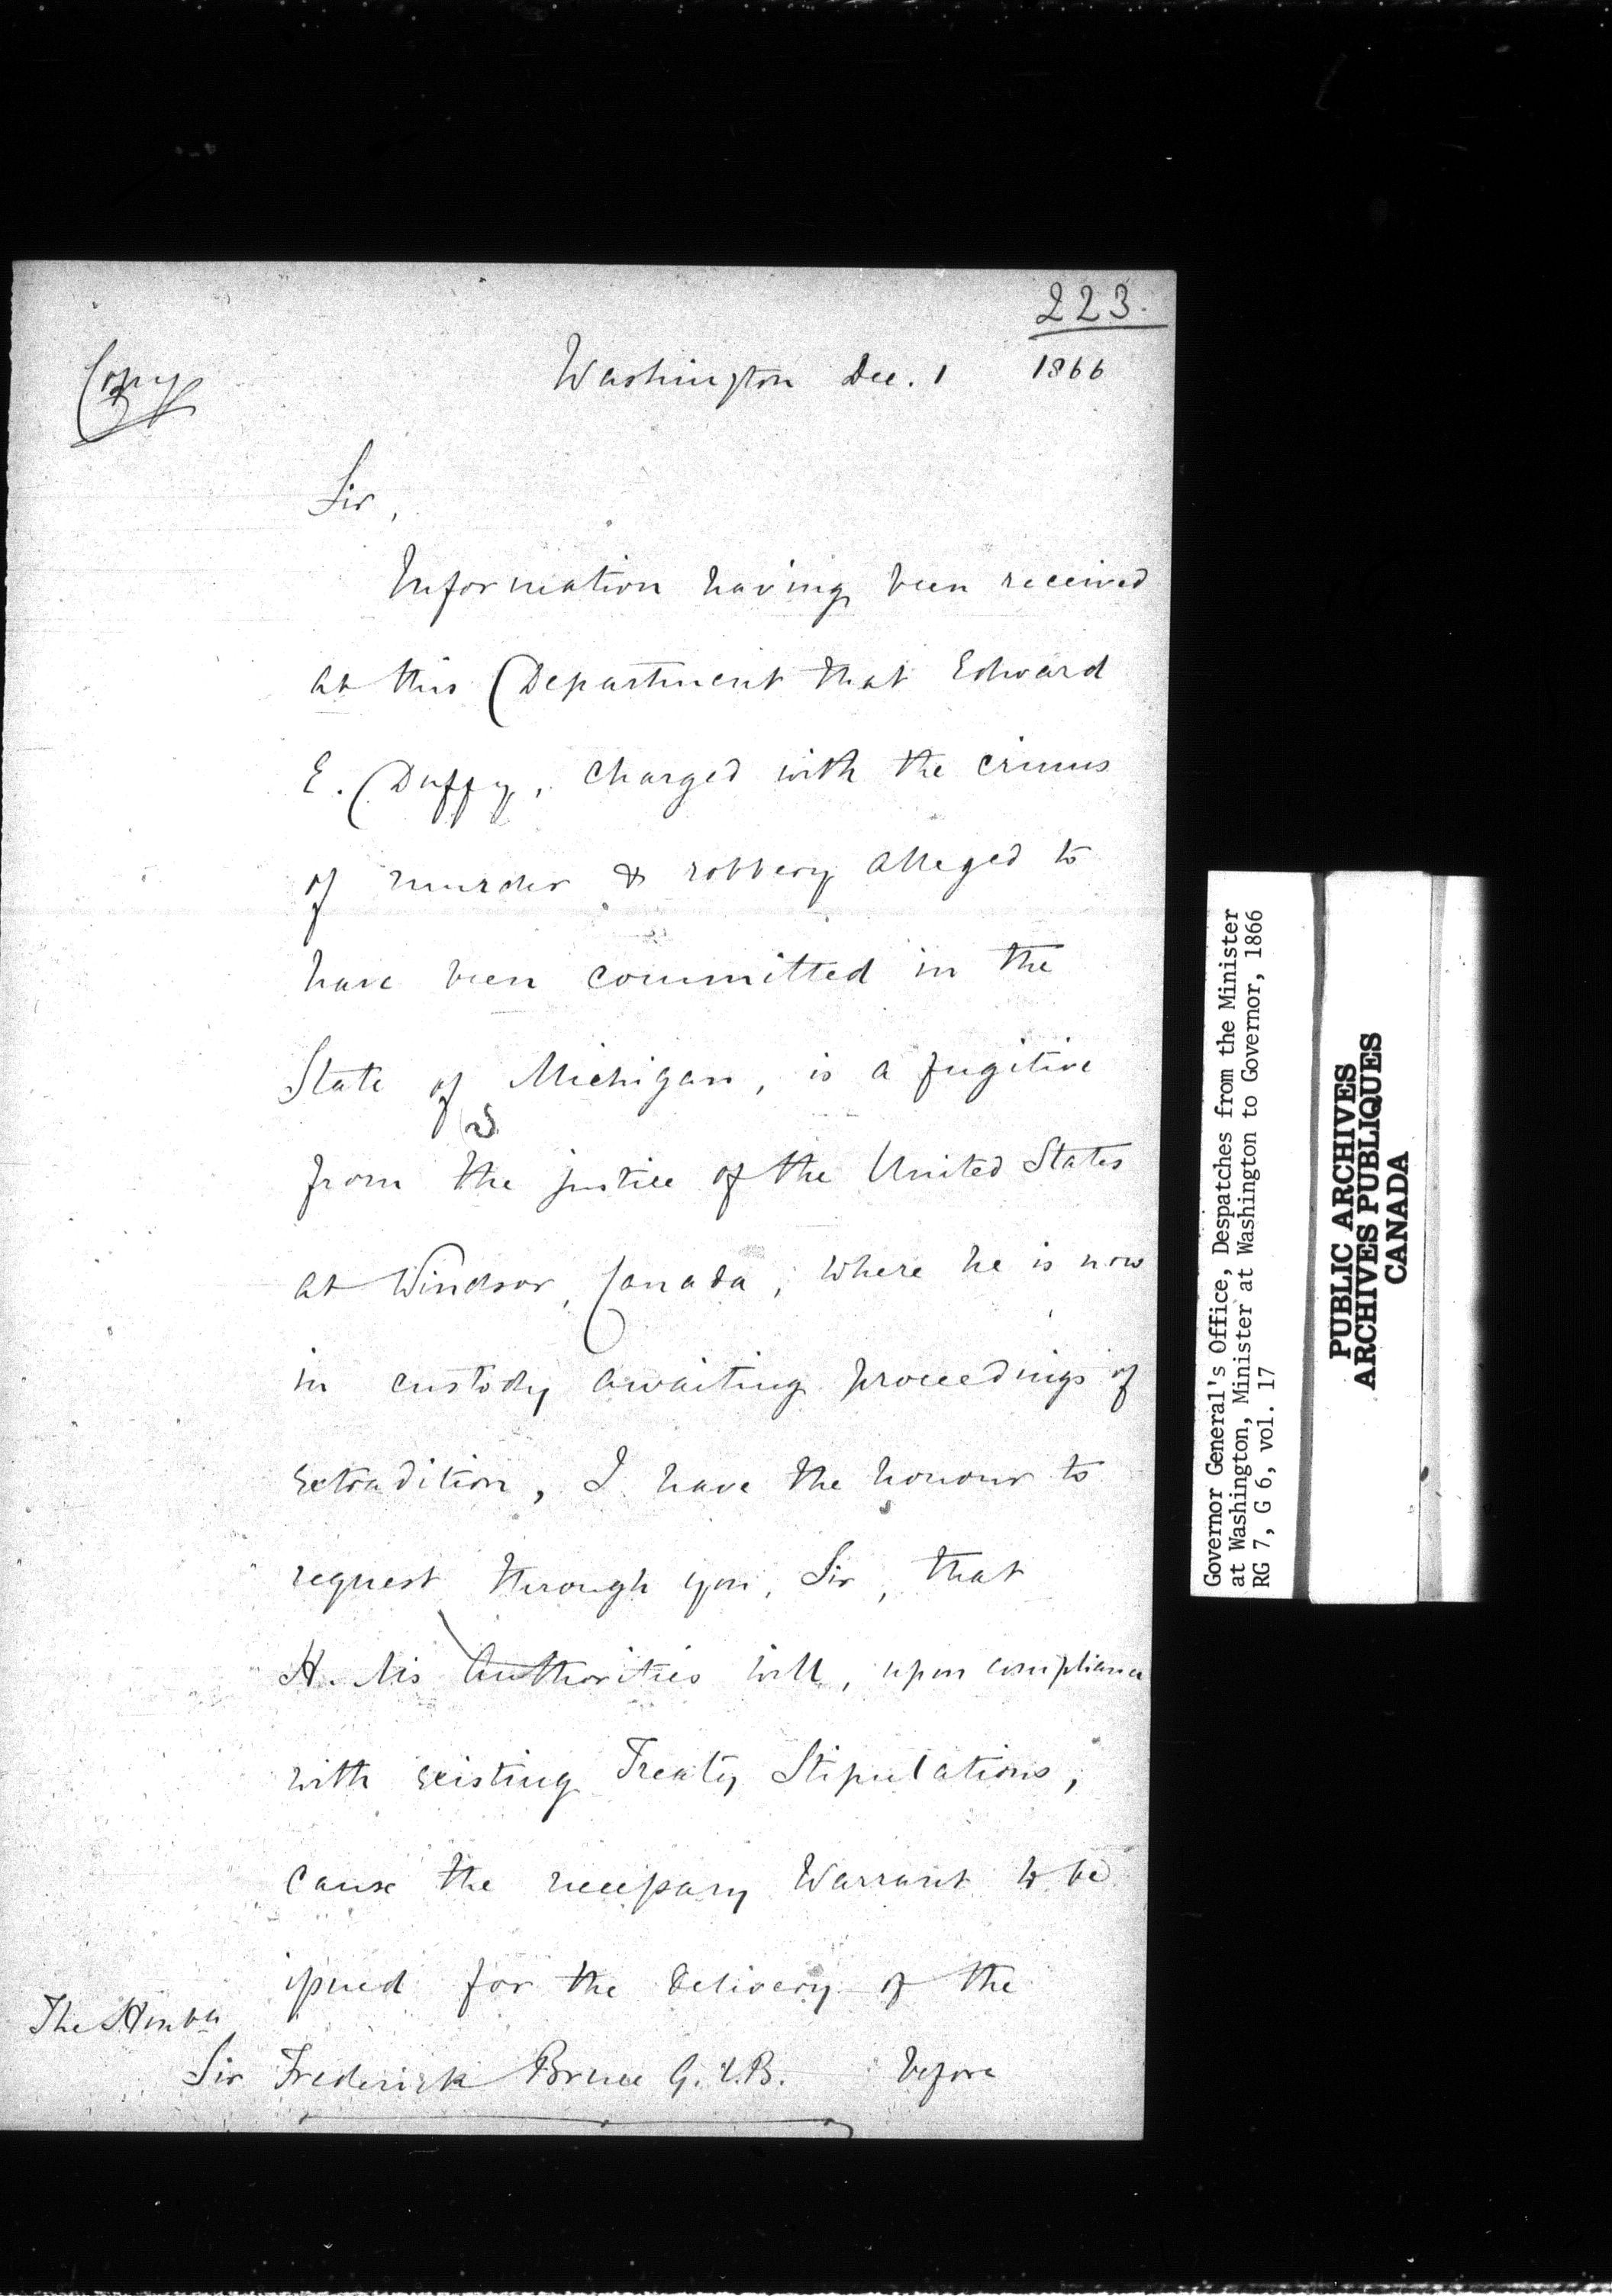 223.
Copy
Washington Dec. 1 1866
Sir,
Information having been received
at this Department that Edward
E. Duffy, charged with the crimes
of murder & robbery alleged to
have been committed in the
State of Michigan, is a fugitive
from the justice of the United States
at Windsor, Canada, where he is now
in custody awaiting proceedings of
extradition, I have the honour to
request through you, Sir, that
H. M's Authorities will, upon compliance
with existing Treaty Stipulations,
cause the necessary Warrant to be
issued for the delivery of the
The Honble
Sir Frederick Bruce G.C.B. before
Governor General's Office, Despatches from the Minister
at Washington, Minister at Washington to Governor, 1866
RG 7, G 6, vol. 17
PUBLIC ARCHIVES
ARCHIVES PUBLIQUES
CANADA